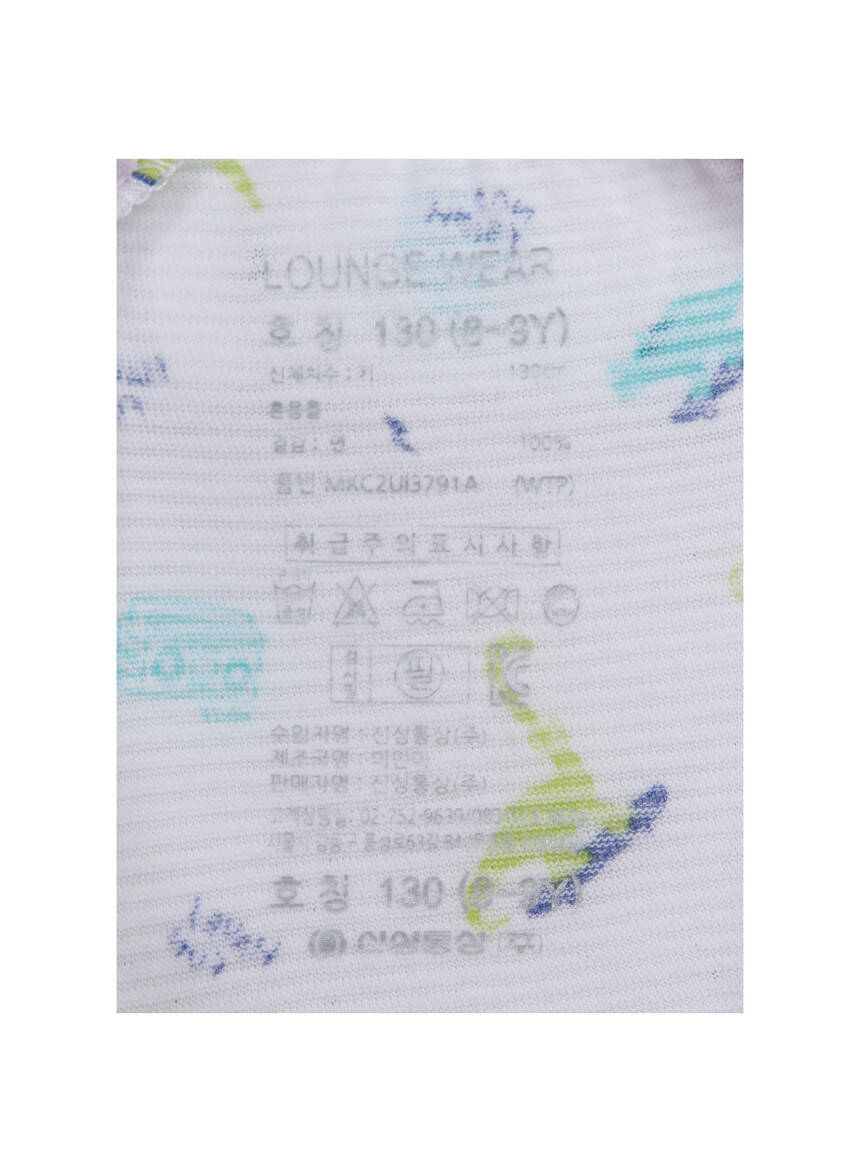 LOUNGE WEAR
호 칭 130 (8-9Y)
신체치수 : 키 130cm
혼용률
겉감 : 면 100%
품번 MKC2UI3791A (WTP)
취급주의표시사항
검사필 필
수입자명 : 신성통상(주)
제조국명 : 미얀마
판매자명 : 신성통상(주)
고객상담실: 02-752-9639/080
서울 강동구 풍성로63길 84
호 칭 130 (8-9Y)
신성통상 (주)